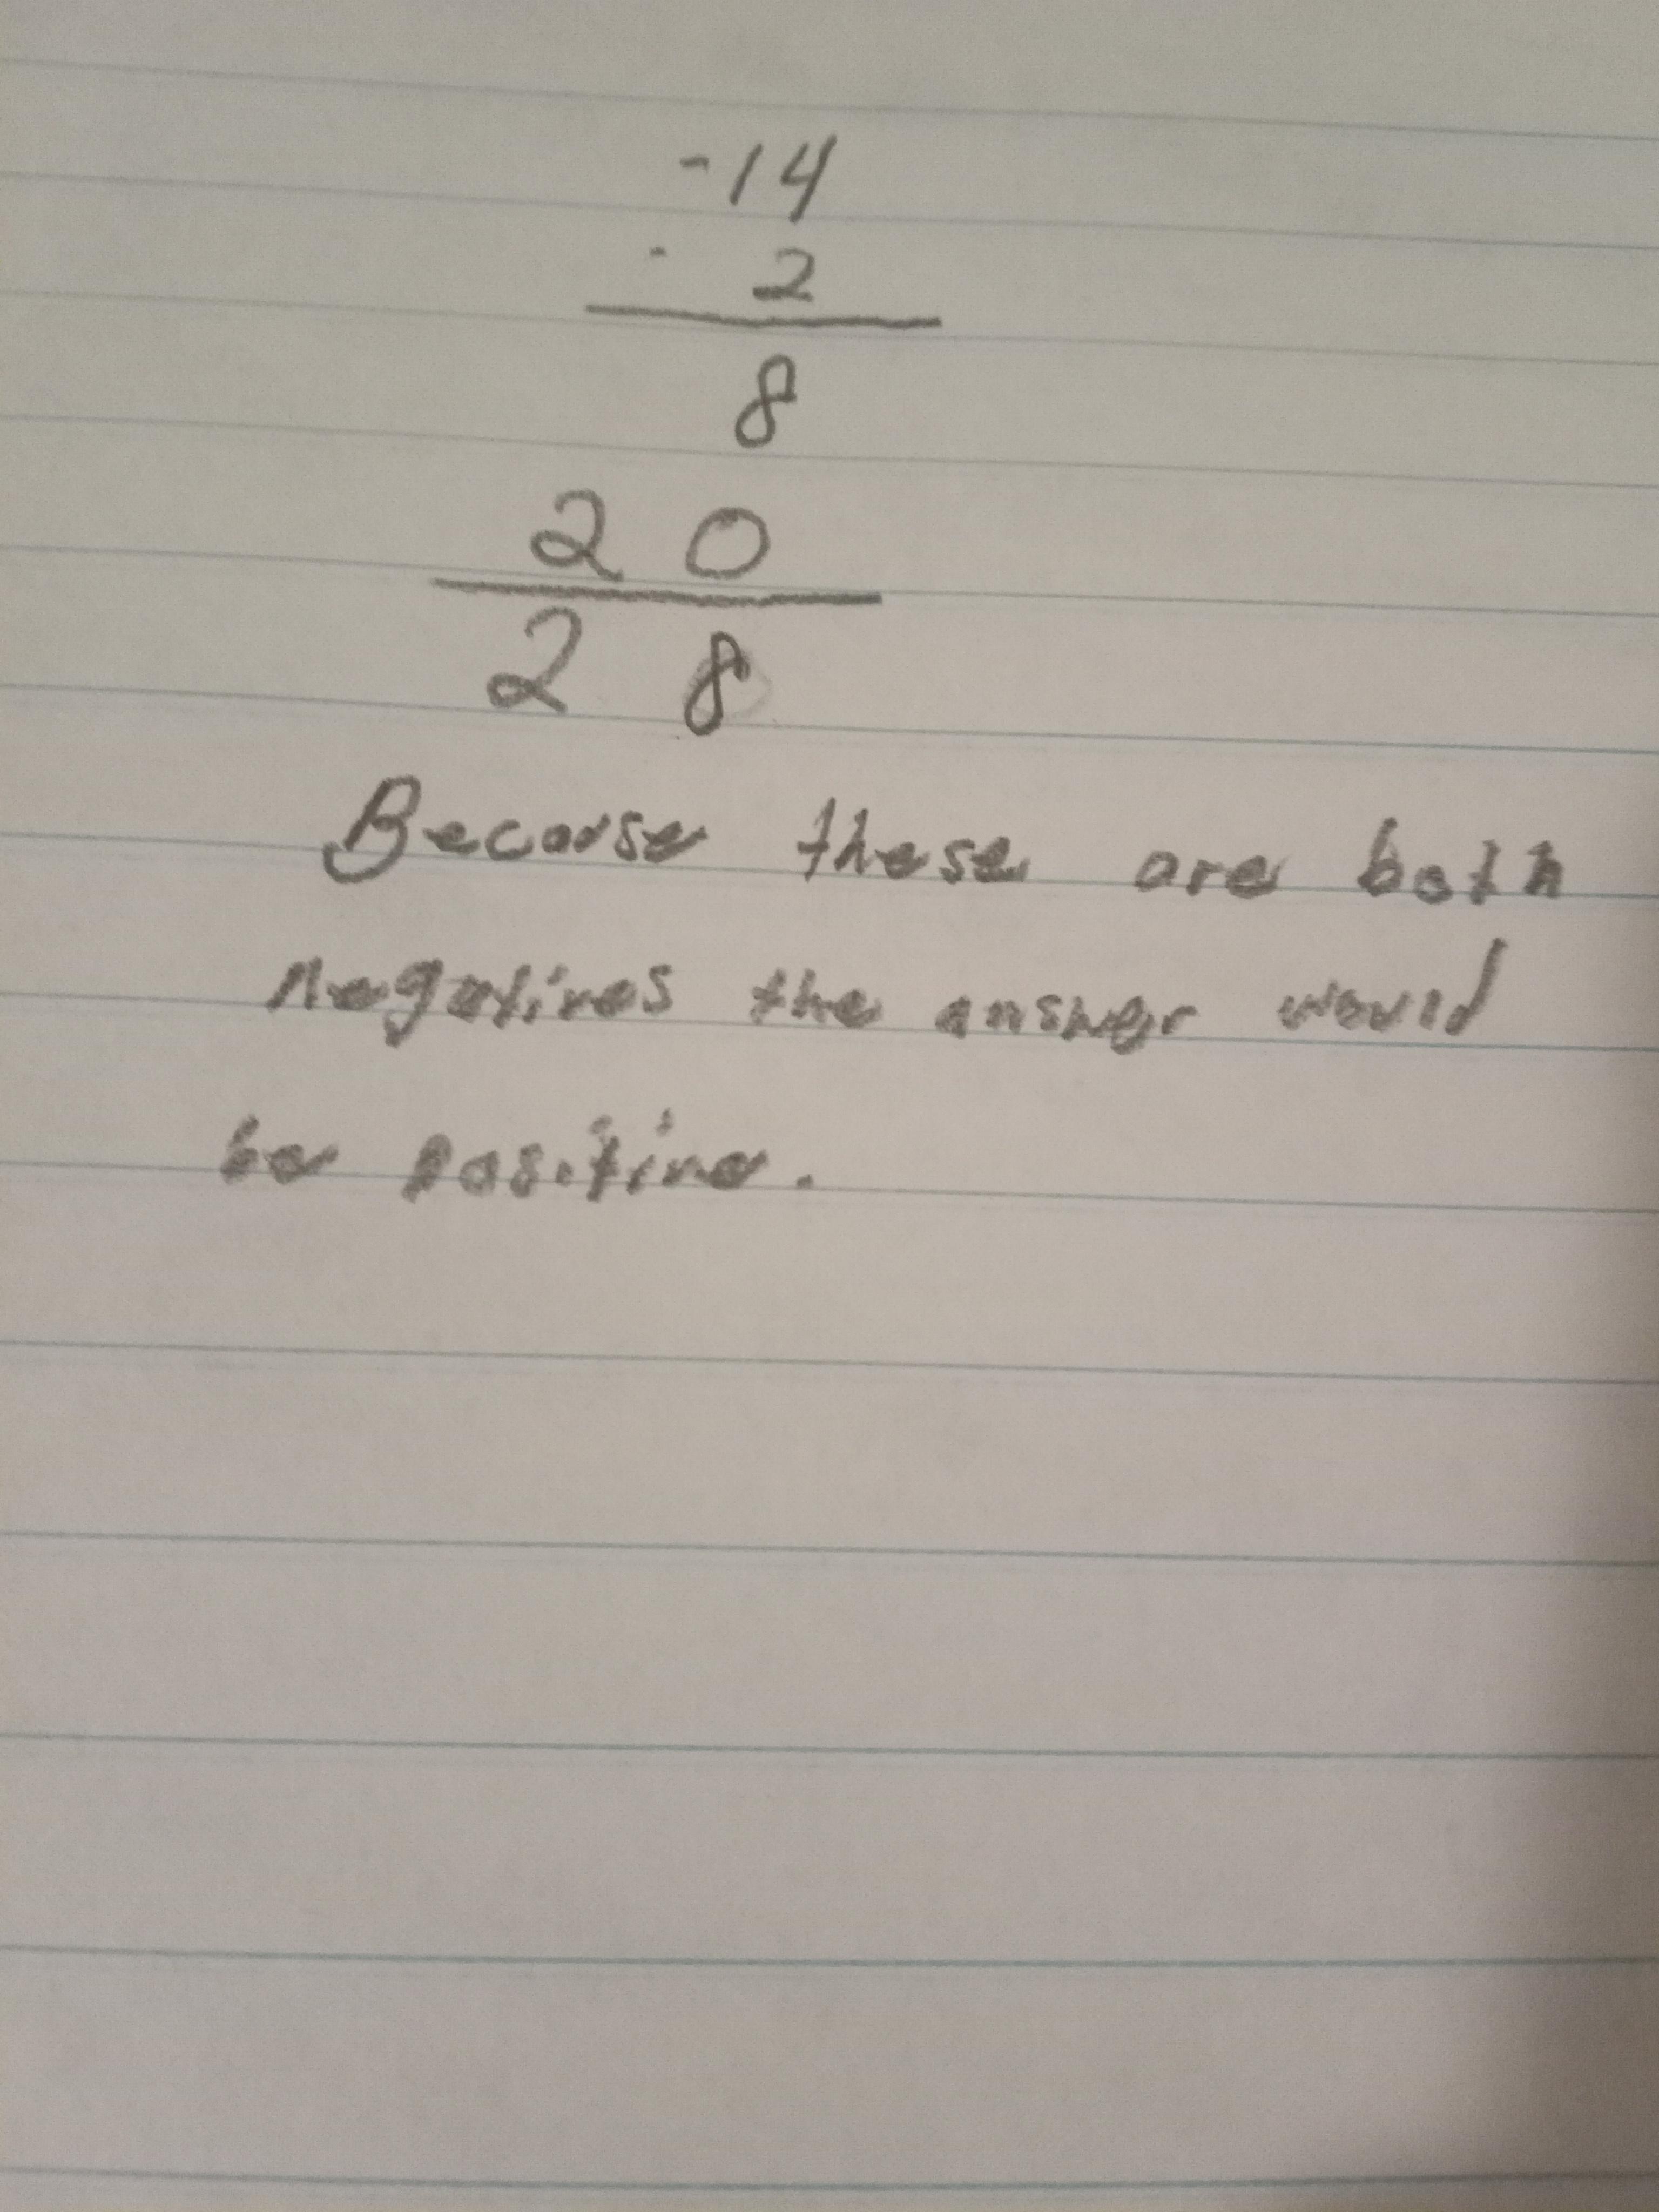 -14
- 2
8
2 0
2 8
Because these are both
negatives the answer would
be positive.